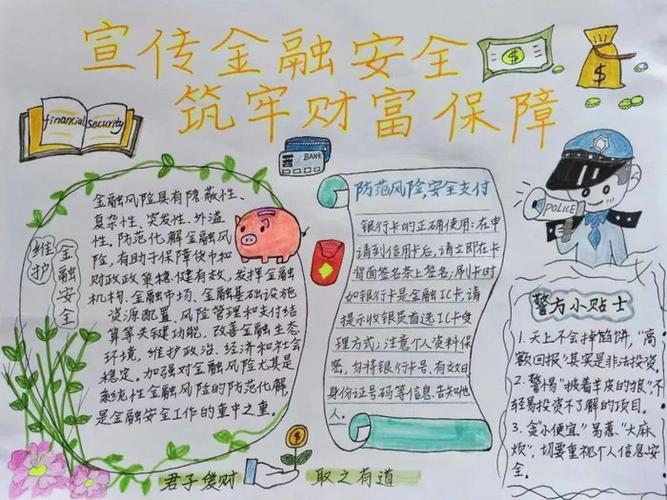 宣传金融安全
筑牢财富保障
financial security
BANK
POLICE
维护
金融安全
金融风险具有隐蔽性、
复杂性、突发性、外溢
性,防范化解金融风
险,有助于保障使中和
财政政策稳健有效,发挥金融
机构、金融市场、金融基础设施
资源配置、风险管理和支付结
算等关键功能,改善金融生态
环境,维护政治、经济和社会
稳定。加强对金融风险尤其是
系统性金融风险的防范化解,
是金融安全工作的重中之重。
防范风险,安全支付
银行卡的正确使用:在申
请到信用卡后,请立即在卡
背面签名条上签名;刷卡时
如银行卡是金融IC卡,请
提示收银员首选IC卡受
理方式;注意个人资料保
密,勿将银行卡号、有效日
身份证号码等信息,告知他
人。
警方小贴士
1.天上不会掉馅饼,“高
额回报”其实是非法投资。
2.警惕“披着羊皮的狼”不
轻易投资不了解的项目。
3.贪“小便宜”易惹“大麻
烦”,切要重视个人信息安
全。
君子爱财 取之有道